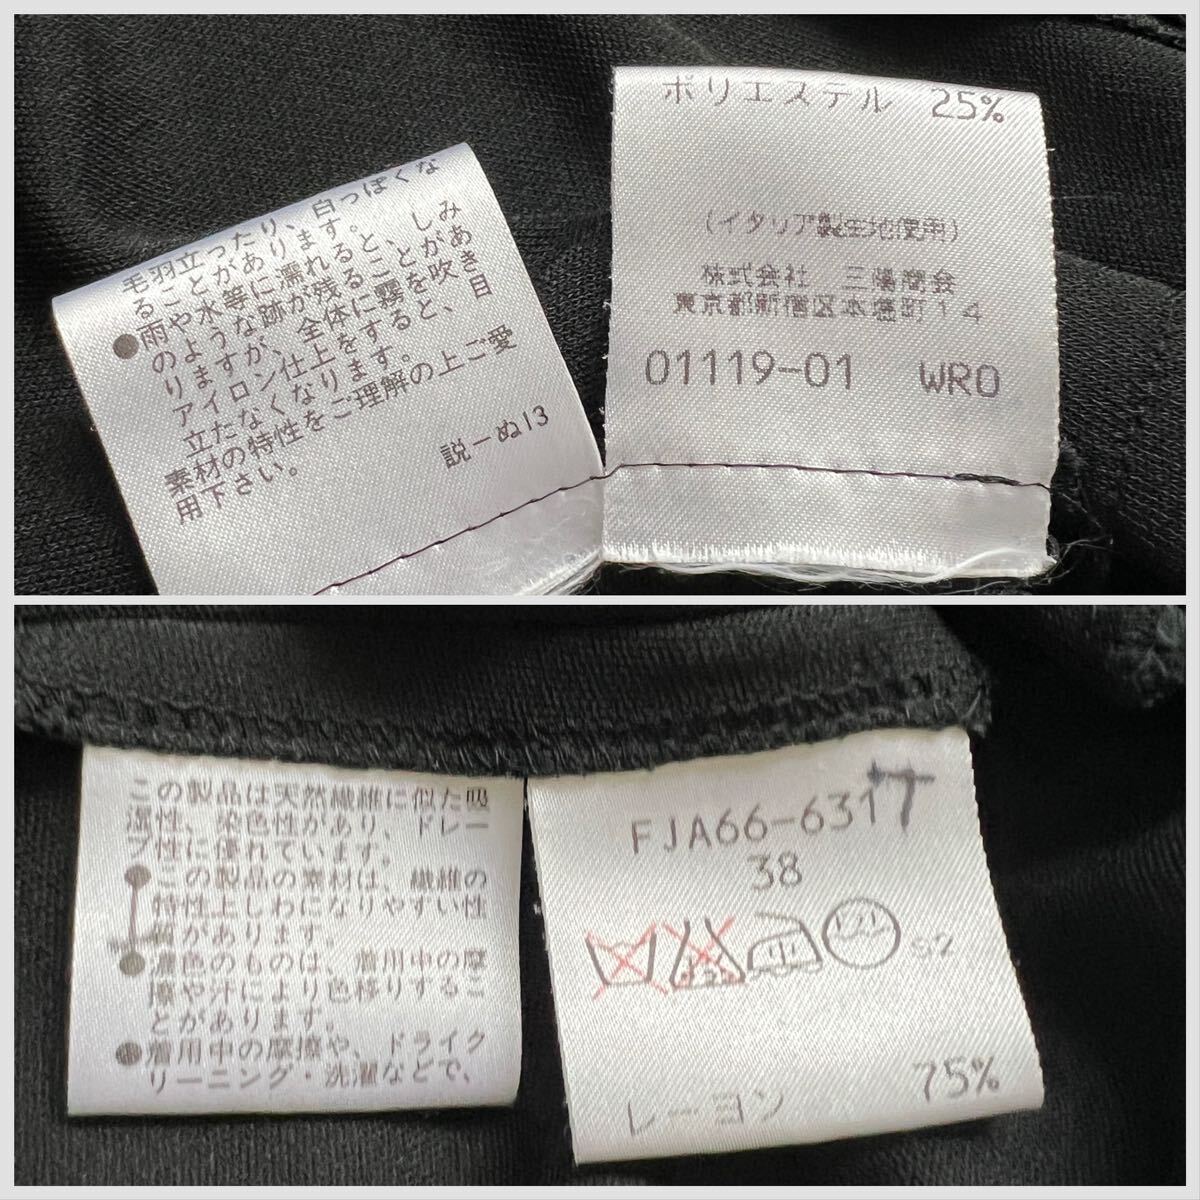 毛羽立ったり、白っぽくな
ることがあります。
●雨や水等に濡れると、しみ
のような跡が残ることがあ
りますが、全体に霧を吹き
アイロン仕上をすると、目
立たなくなります。
素材の特性をご理解の上ご愛
用下さい。
説－ぬ13
ポリエステル 25%
(イタリア製生地使用)
株式会社 三陽商会
東京都新宿区本塩町14
01119-01 WRO
この製品は天然繊維に似た吸
湿性、染色性があり、ドレー
プ性に優れています。
●この製品の素材は、繊維の
特性上しわになりやすい性
質があります。
●濃色のものは、着用中の摩
擦や汗により色移りするこ
とがあります。
●着用中の摩擦や、ドライク
リーニング・洗濯などで、
FJA66-6317
38
レーヨン 75%